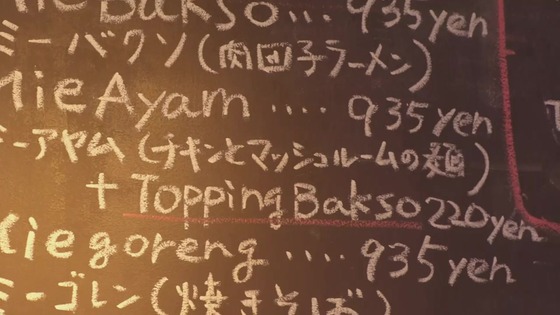 Mie Bakso.... 935yen
ミーバクソ(肉団子ラーメン)
Mie Ayam .... 935yen
ミーアヤム (チキンとマッシュルームの麺)
+ Topping Bakso 220yen
Mie goreng .... 935yen
ミーゴレン(焼きそば)